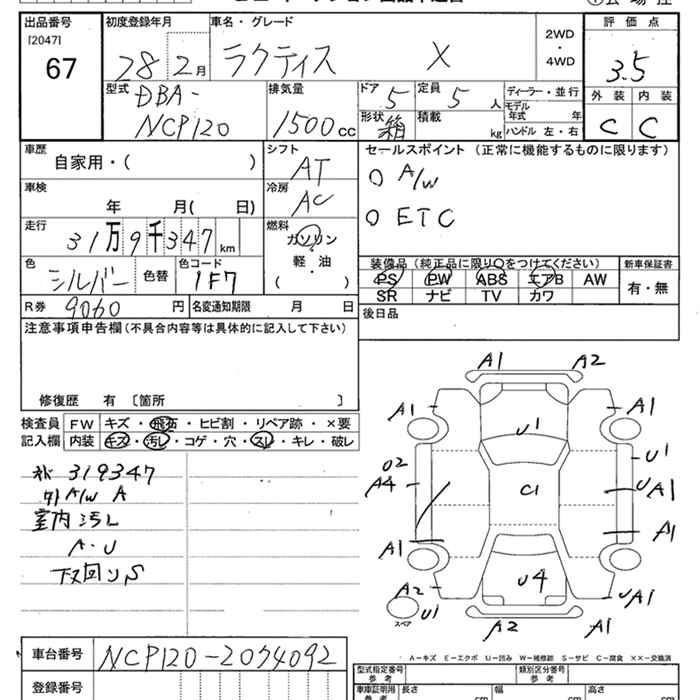 出品番号
[2047]
67
初度登録年月
28 2月
車名・グレード
ラクティス X
2WD
・
4WD
評価点
3.5
外装 内装
C C
型式
DBA-
NCP120
排気量
1500cc
ドア
5
定員
5人
形状
箱
積載
kg
ディーラー・並行
モデル
年式 年
ハンドル 左・右
車歴
自家用・( )
シフト
AT
車検
年 月( 日)
冷房
AC
走行
31万9千347km
燃料
ガソリン
軽・油
( )
色
シルバー
色替
色コード
1F7
R券
9060円
名変通知期限 月 日
セールスポイント(正常に機能するものに限ります)
○ A/W
○ ETC
装備品(純正品に限り○をつけてください)
PS PW ABS エアB AW
SR ナビ TV カワ
新車保証書
有・無
後日品
注意事項申告欄(不具合内容等は具体的に記入して下さい)
修復歴 有 〔箇所 〕
検査員
記入欄
FW キズ・飛石・ヒビ割・リペア跡・×要
内装 キズ・汚レ・コゲ・穴・スレ・キレ・破レ
319347
外A/W A
室内汚レ
A・U
下回りS
A1 A2
A1 A1
U1
U2
A4
U1
C1
UA1
A1
A1
U4
A2
UA1
スペア
U1
A2 A1
A-キズ E-エクボ U-凹み W-補修跡 S-サビ C-腐食 ××-交換済
車台番号
NCP120-2074092
登録番号
型式指定番号
参考
類別区分番号
参考
車庫証明用
参考
長さ cm
幅 cm
高さ cm